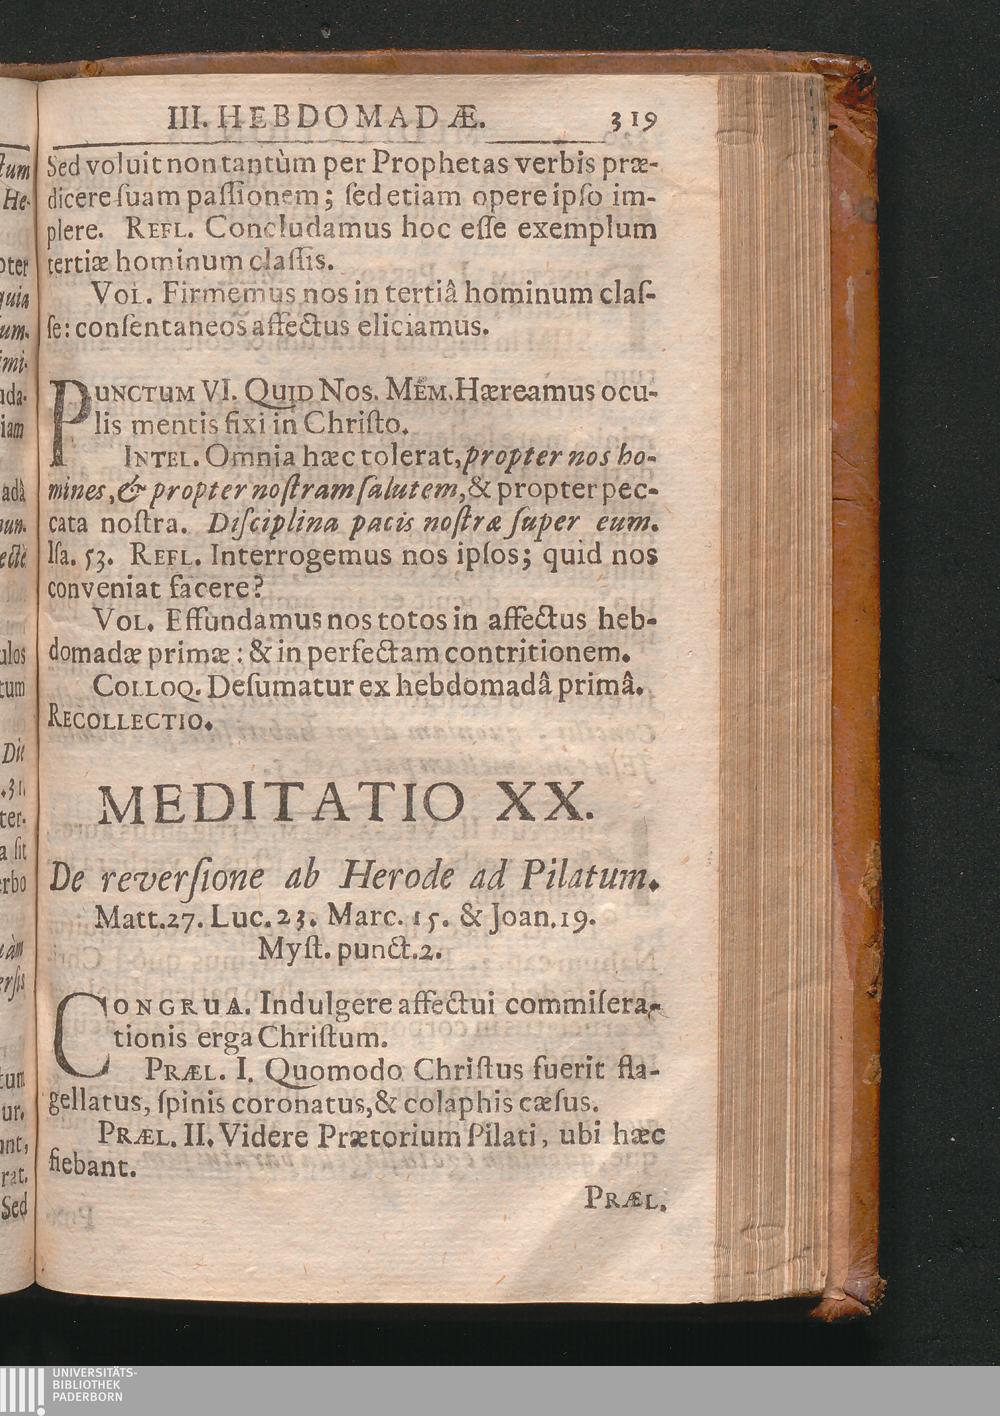 III. HEBDOMADÆ. 319
Sed voluit non tantùm per Prophetas verbis præ-
dicere ſuam paſſionem; ſed etiam opere ipſo im-
plere. REFL. Concludamus hoc eſſe exemplum
tertiæ hominum claſſis.
VOL. Firmemus nos in tertiâ hominum claſ-
ſe: conſentaneos affectus eliciamus.
PUNCTUM VI. QUID NOS. MEM. Hæreamus ocu-
lis mentis fixi in Chriſto.
INTEL. Omnia hæc tolerat, propter nos ho-
mines, & propter noſtram ſalutem, & propter pec-
cata noſtra. Diſciplina pacis noſtræ ſuper eum.
Iſa. 53. REFL. Interrogemus nos ipſos; quid nos
conveniat facere?
VOL. Effundamus nos totos in affectus heb-
domadæ primæ: & in perfectam contritionem.
COLLOQ. Deſumatur ex hebdomadâ primâ.
RECOLLECTIO.
MEDITATIO XX.
De reverſione ab Herode ad Pilatum.
Matt. 27. Luc. 23. Marc. 15. & Joan. 19.
Myſt. punct. 2.
CONGRUA. Indulgere affectui commiſera-
tionis erga Chriſtum.
PRÆL. I. Quomodo Chriſtus fuerit fla-
gellatus, ſpinis coronatus, & colaphis cæſus.
PRÆL. II. Videre Prætorium Pilati, ubi hæc
fiebant.
PRÆL.
UNIVERSITÄTS-
BIBLIOTHEK
PADERBORN